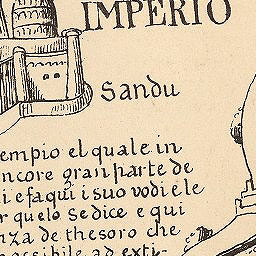 IMPERIO
Sandu
empio el quale in
ncore gran parte de
i e faqui i suo vodi e le
r quelo se dice e qui
nza de thesoro che
possibile ad exti-